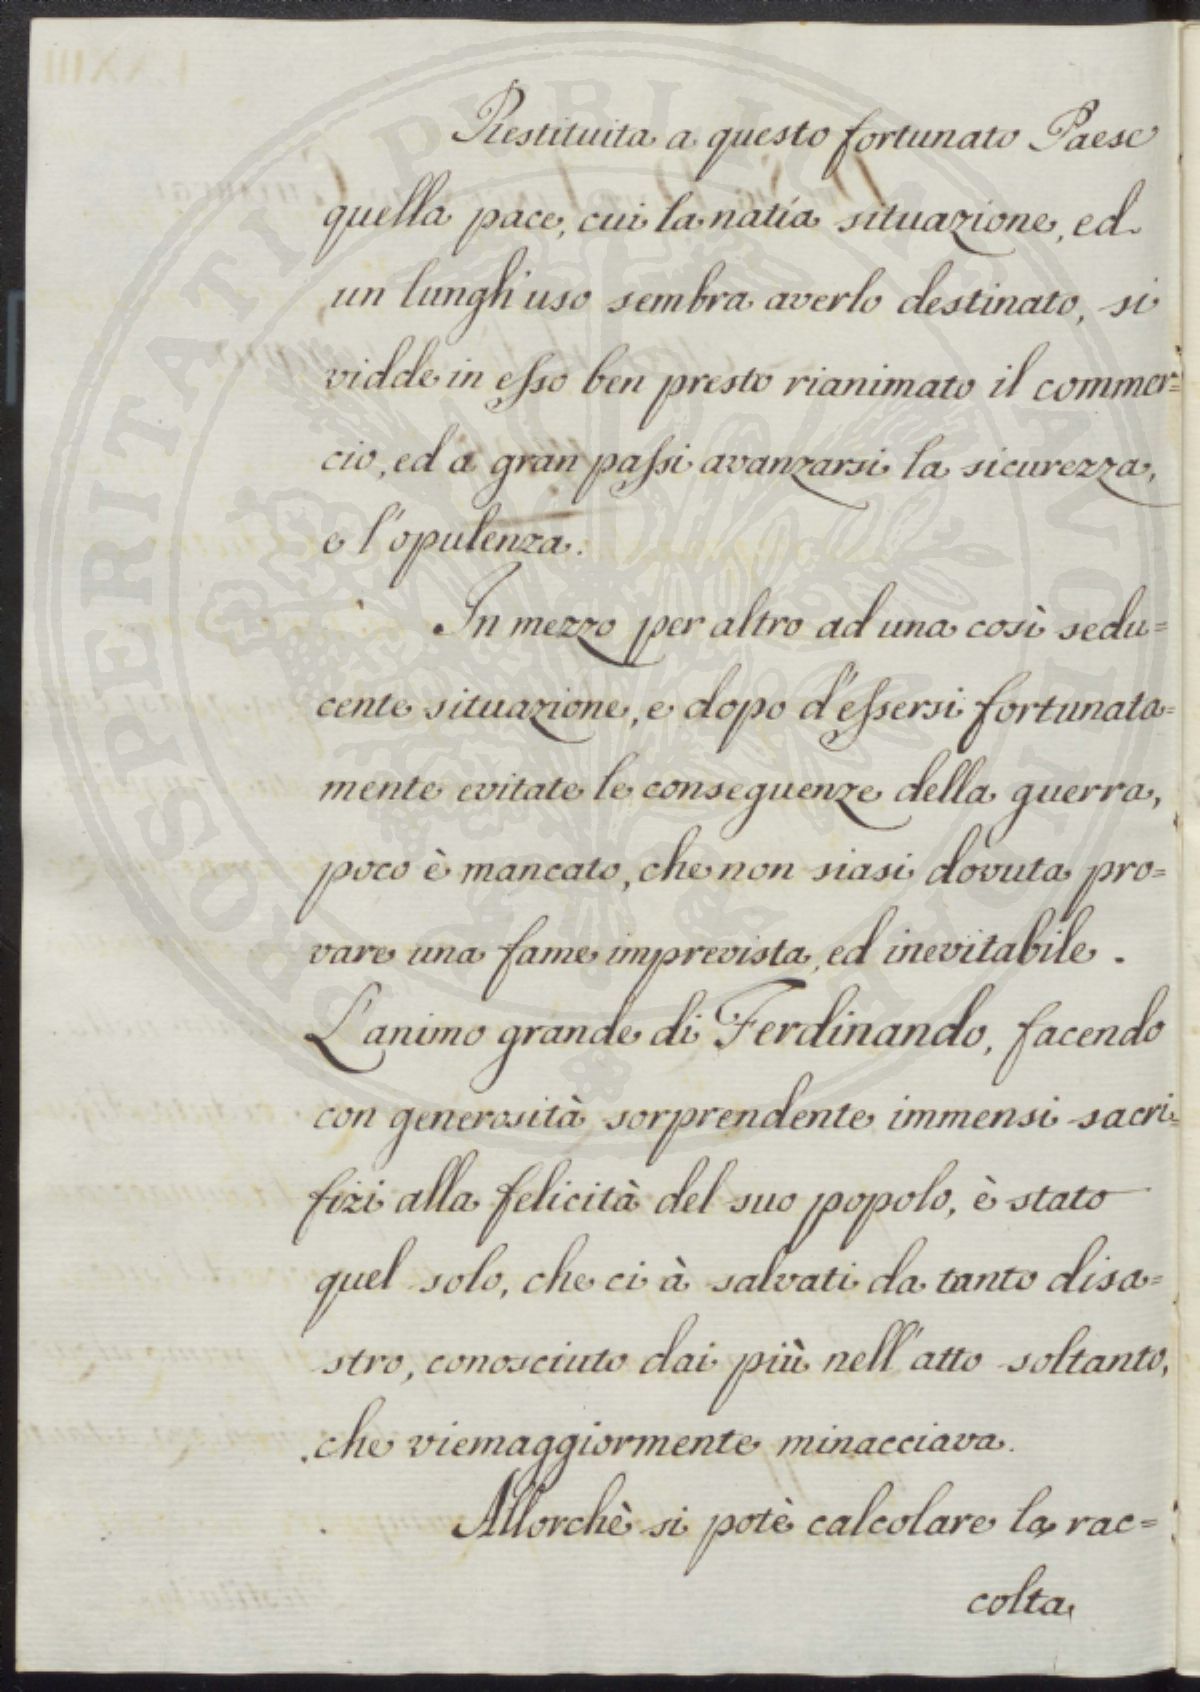 Restituita a questo fortunato Paese
quella pace, cui la natía situazione, ed
un lungh'uso sembra averlo destinato, si
vidde in esso ben presto rianimato il commer=
cio, ed a gran passi avanzarsi la sicurezza,
e l'opulenza.
In mezzo per altro ad una così sedu=
cente situazione, e dopo d'essersi fortunata=
mente evitate le conseguenze della guerra,
poco è mancato, che non siasi dovuta pro=
vare una fame imprevista, ed inevitabile.
L'animo grande di Ferdinando, facendo
con generosità sorprendente immensi sacri=
fizi alla felicità del suo popolo, è stato
quel solo, che ci à salvati da tanto disa=
stro, conosciuto dai più nell'atto soltanto,
che viemaggiormente minacciava.
Allorchè si potè calcolare la rac=
colta
PROSPERITATI PUBLICAE AUGENDAE